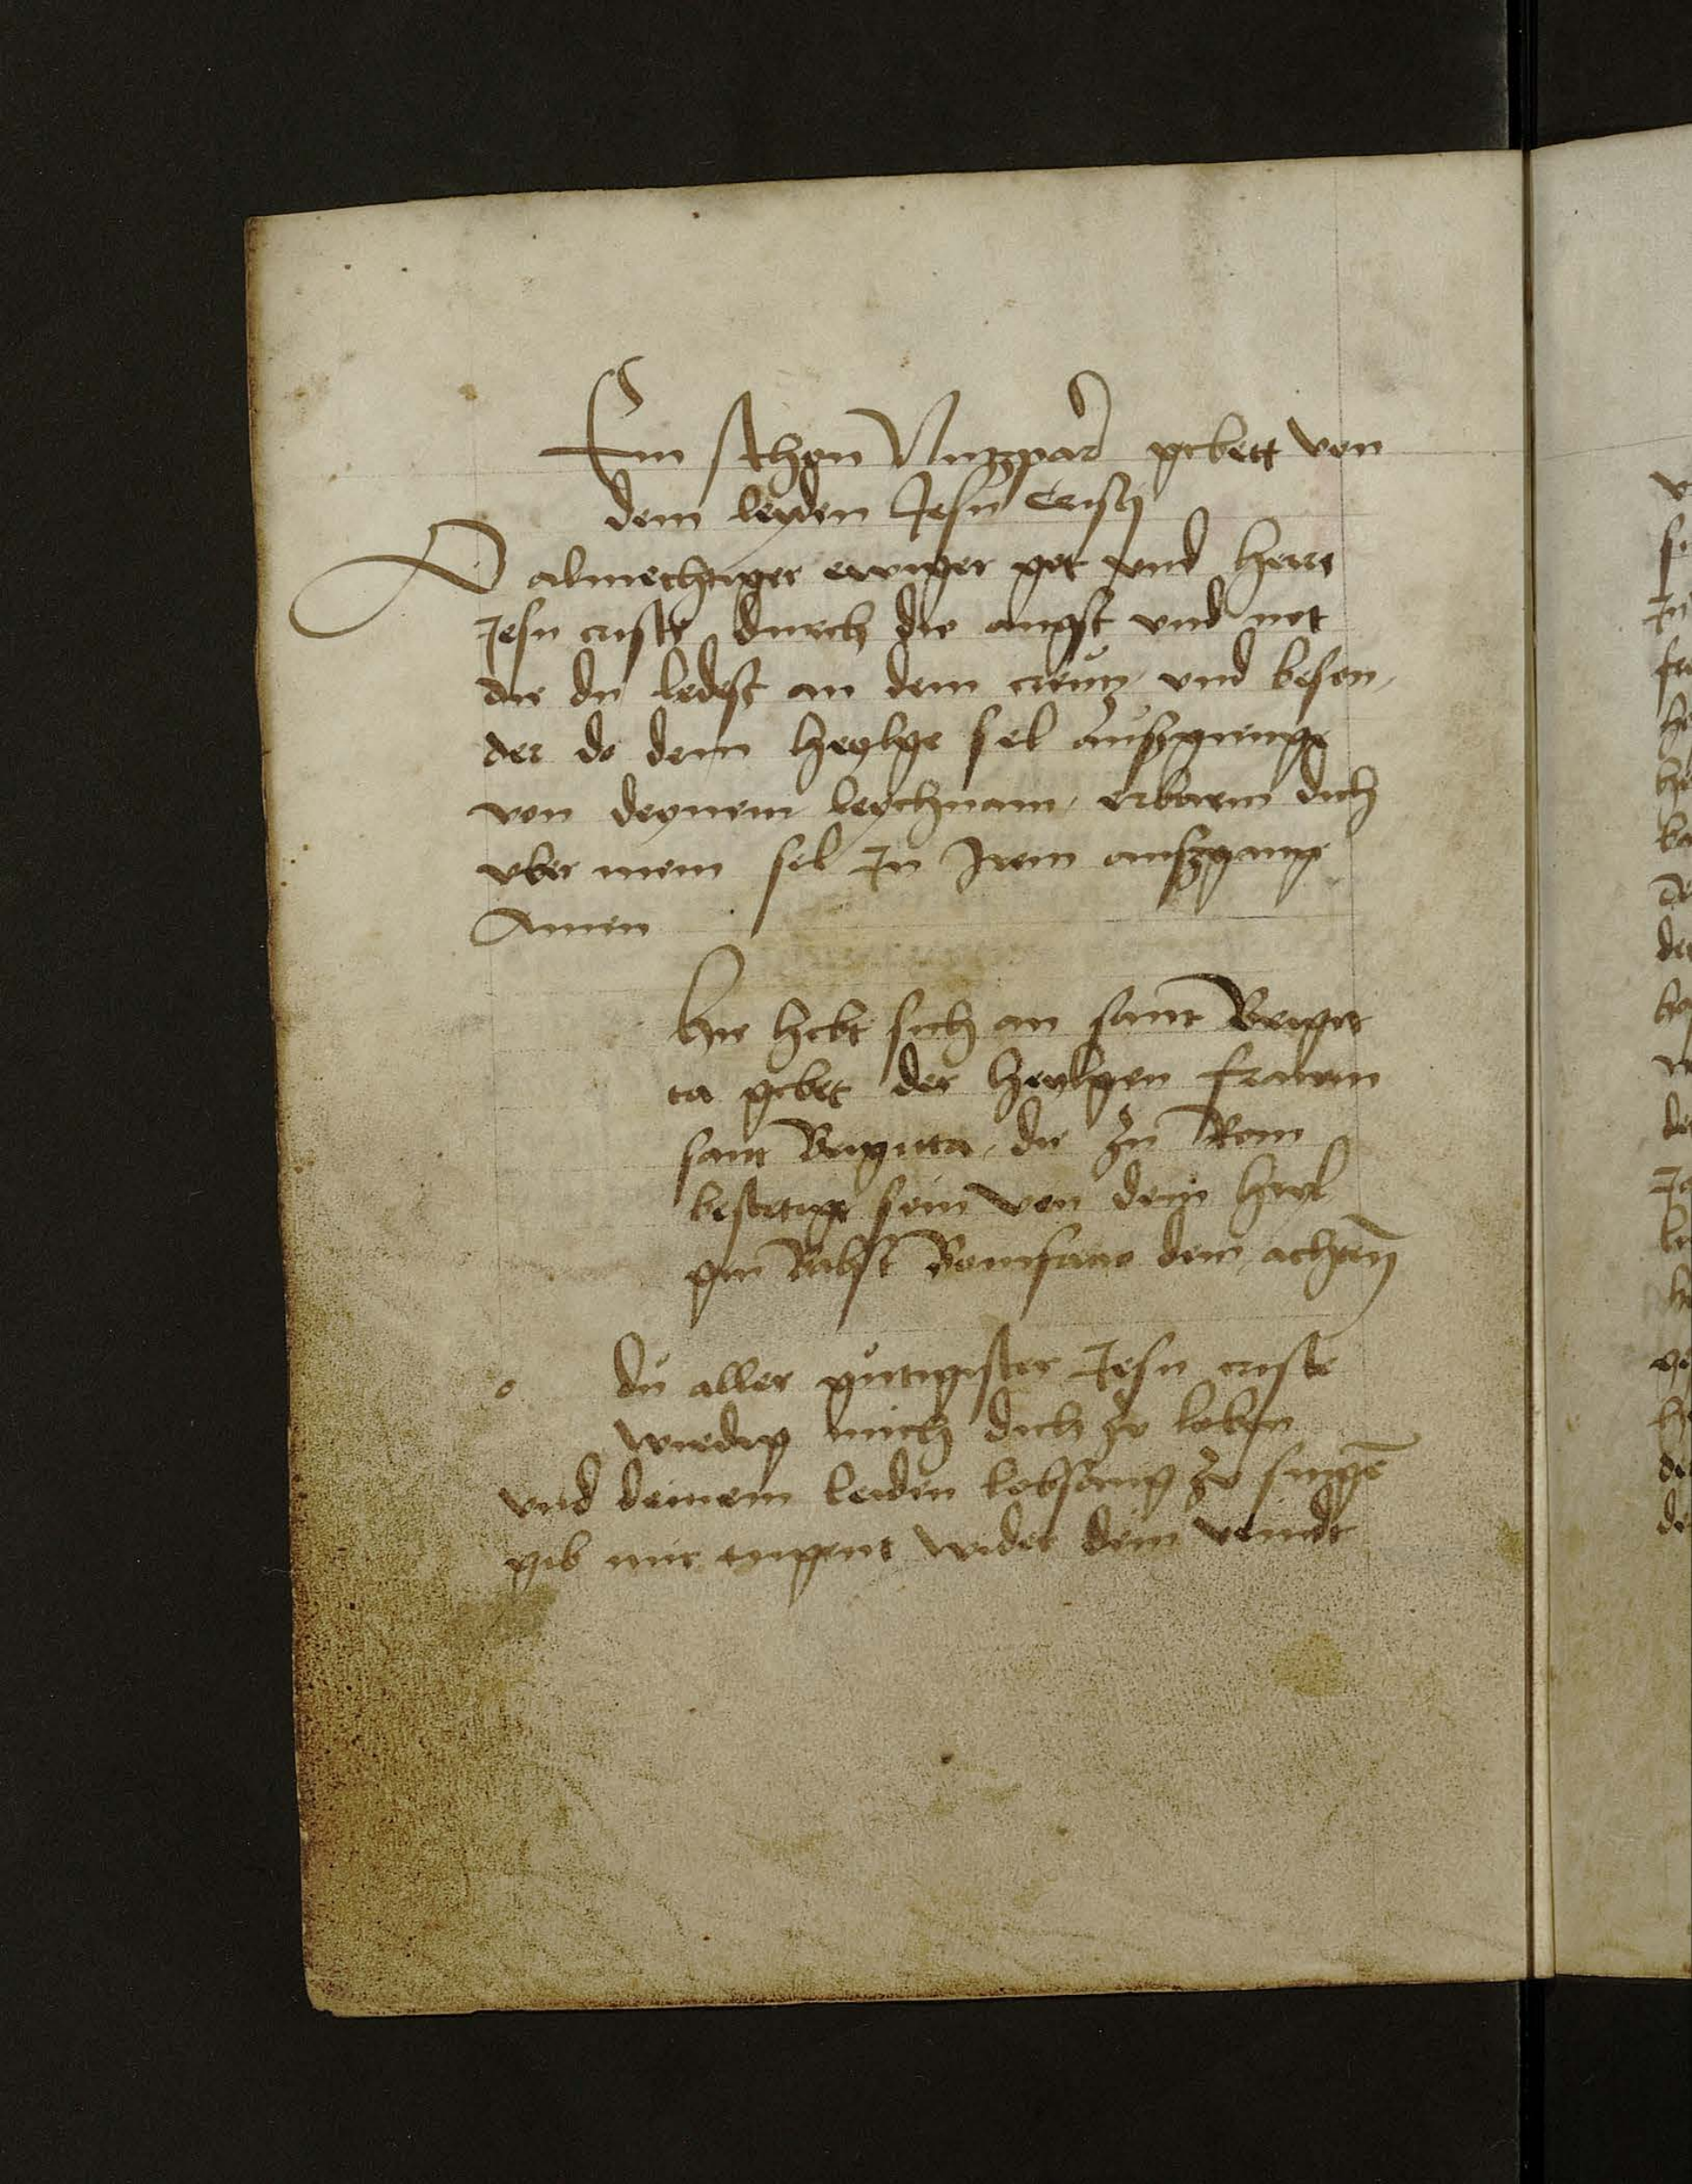 Ein schon Nutzpar gebett von
dem leyden Jesu Cristi
O almechtiger ewiger got vnd herre
Jesu criste durch die angst vnd not
die du ledest an dem creutz vnd beson,
der do dein heylge sel auszgienge
von deynem leychnam, erbarm dich
vber mein sel Jn Jrem auszgange
Amen
Hie hebt sich an sant Brigit
ta gebet der heylgen frawen
sant Brigitta, die zu Rom
bestetigt sein von dem heyl
gen Babst Bonifacio dem achten
o du aller gütigister Jesu criste
wirdig mich dich zo loben
vnd deinem leiden lobsang zo singē
gib mir tugent wider dein veindt